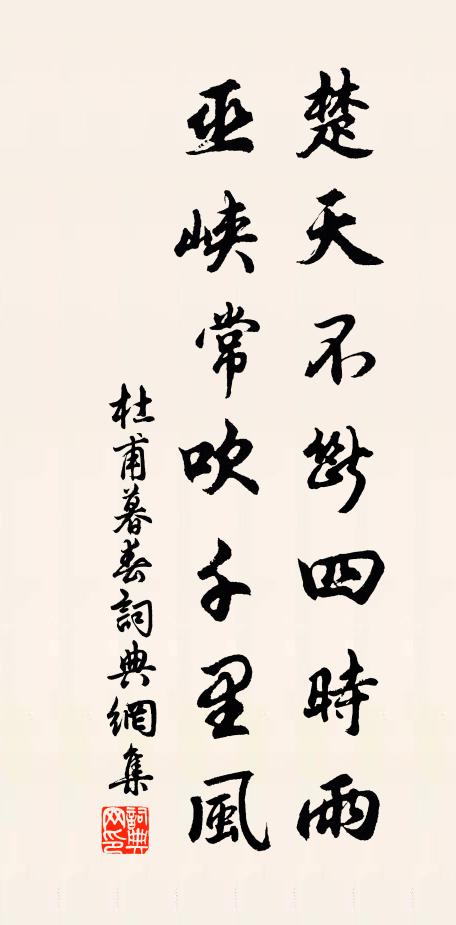 楚天不斷四時雨
巫峽常吹千里風
杜甫暮春詞典網集
詞典網印